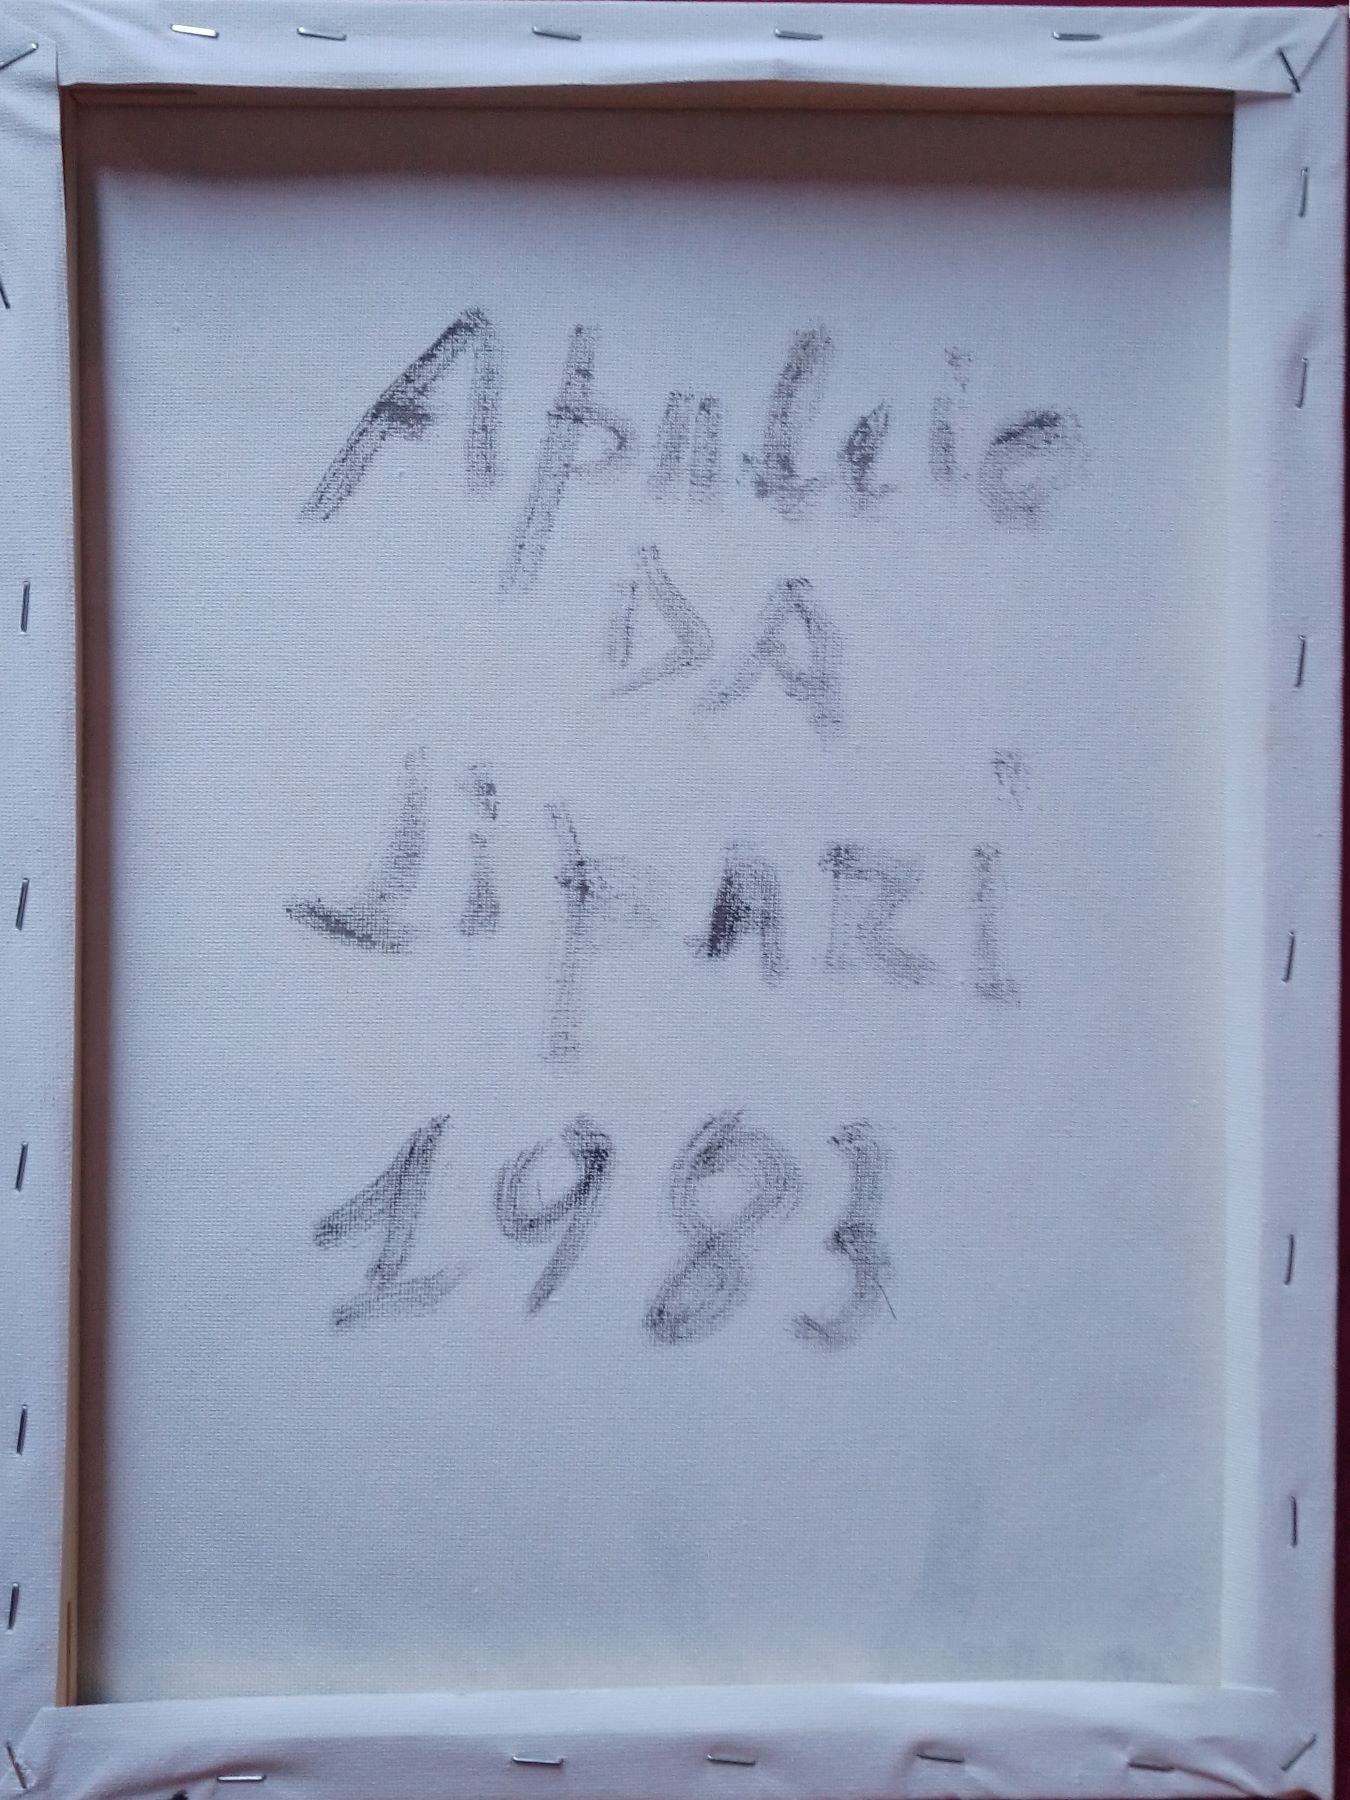 Apuleio
DA
LipARI
1983